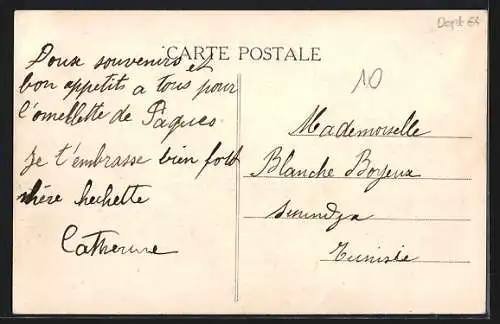 CARTE POSTALE
Doux souvenirs et
bon appetits a tous pour
l'omellette de Pâques
Je t'embrasse bien fort
chère
Catherine
10
Mademoiselle
Blanche Boyeux
Tunisie